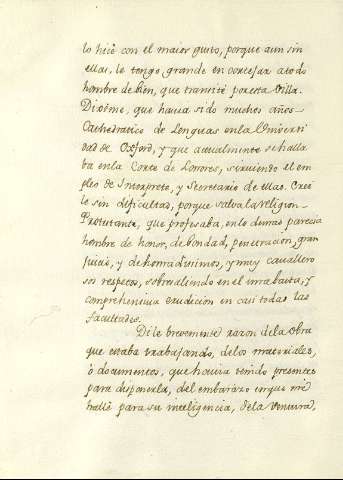 lo hicé con el maior gusto, porque aun sin
ellas, le tengo grande en cortejar a todo
hombre de bien, que transite por esta Villa.
Dixome, que havia sido muchos años
Cathedratico de Lenguas en la Universi
dad de Oxford, y que actualmente se halla
ba en la Corte de Londres, sirviendo el em
pleo de Interprete, y Secretario de ellas. Creí
le sin dificultad, porque salva la religion
Protestante, que profesaba, en lo demas parecia
hombre de honor, de bondad, penetracion, gran
juicio, y de honradisimos, y muy cavallero
sos respetos, sobresaliendo en el una basta, y
comprehensiva erudicion en casi todas las
facultades.
Dile brevemente razon de la obra
que estaba trabajando, de los materiales,
ò documentos, que havia tenido presentes
para disponerla, del embarazo en que me
hallé para su inteligencia, de la ventura,